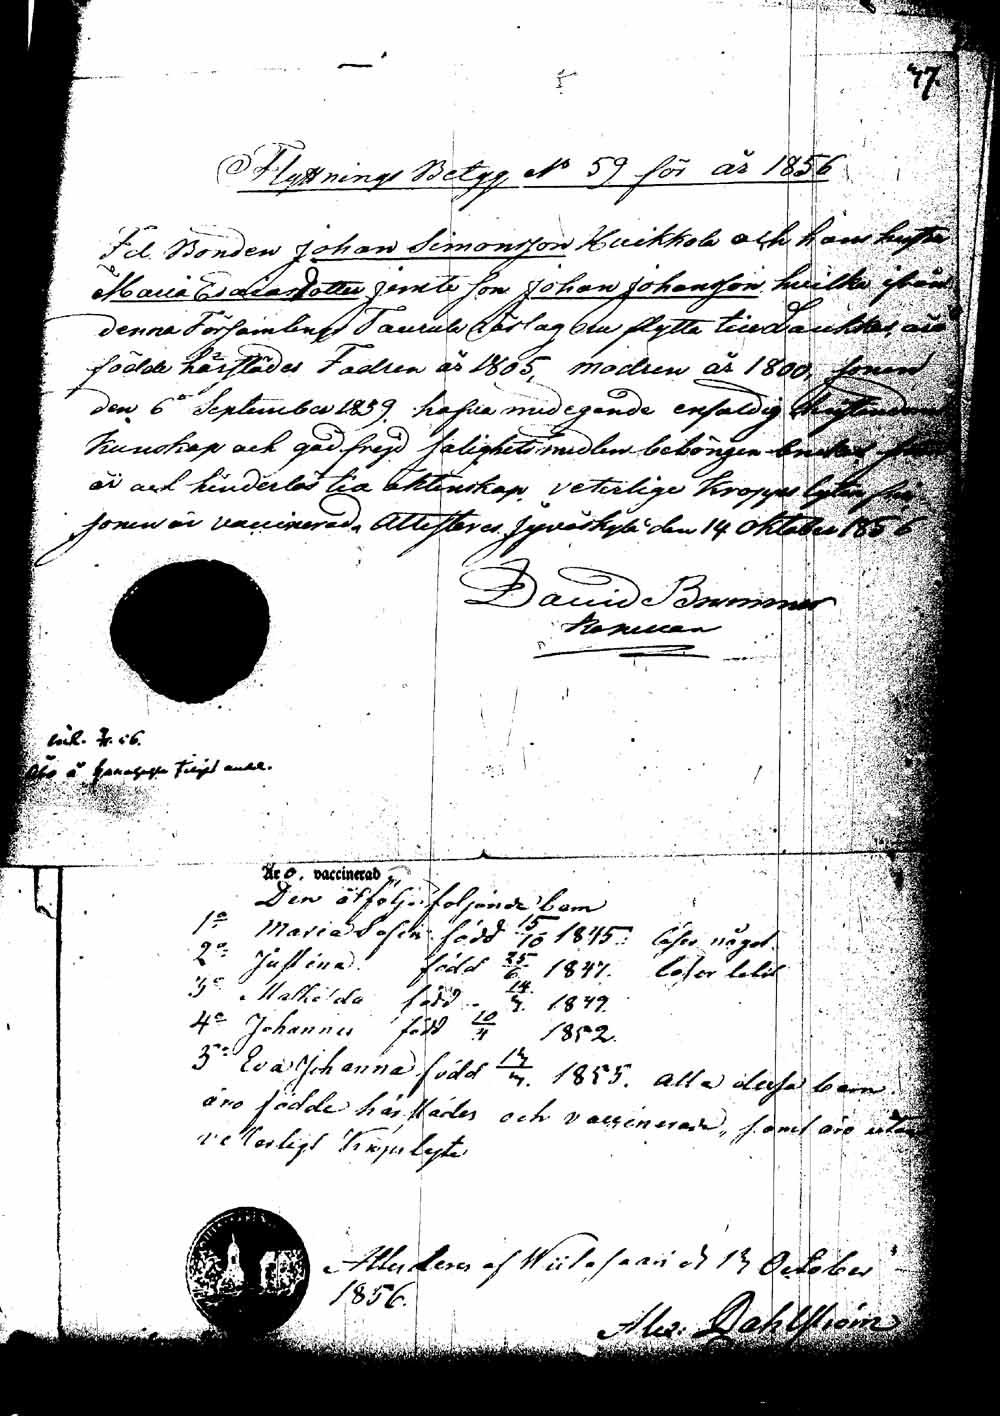 77.
Flyttnings Betyg No 59 för år 1856
Fd. Bonden Johan Simonsson Kuikkola och hans hustru
Maria Esaiasdotter jemte son Johan Johansson hvilka ifrån
denna Församlings Taurula flytta till Laukkas, äro
födde härstädes Fadren år 1805, modren år 1800, sonen
den 6 September 1839 hafva medegande enfaldig Christendoms
Kunskap och god frejd salighets medlen behörigen
är och hinderlös till äktenskap, veterlige Kropps lyten fri
sonen är vaccinerad. Attesteras Jyväskylä den 14 Oktober 1856
David Brummer
Kapellan
56.
Är o. vaccinerad
Den åtfölja följande barn
1o Maria Sofia född 15/10 1845. läser något
2o Justina född 25/6 1847. läser
3o Mathilda född 14/7. 1849.
4o Johannes född 10/4 1852.
5o Eva Johanna född 17/7. 1855. alla dessa barn
äro födde härstädes och vaccinerade, samt äro utan
veterligt Kropslyte
Attesteras af Wiitasaari d 17 October
1856.
Alex. Dahlström